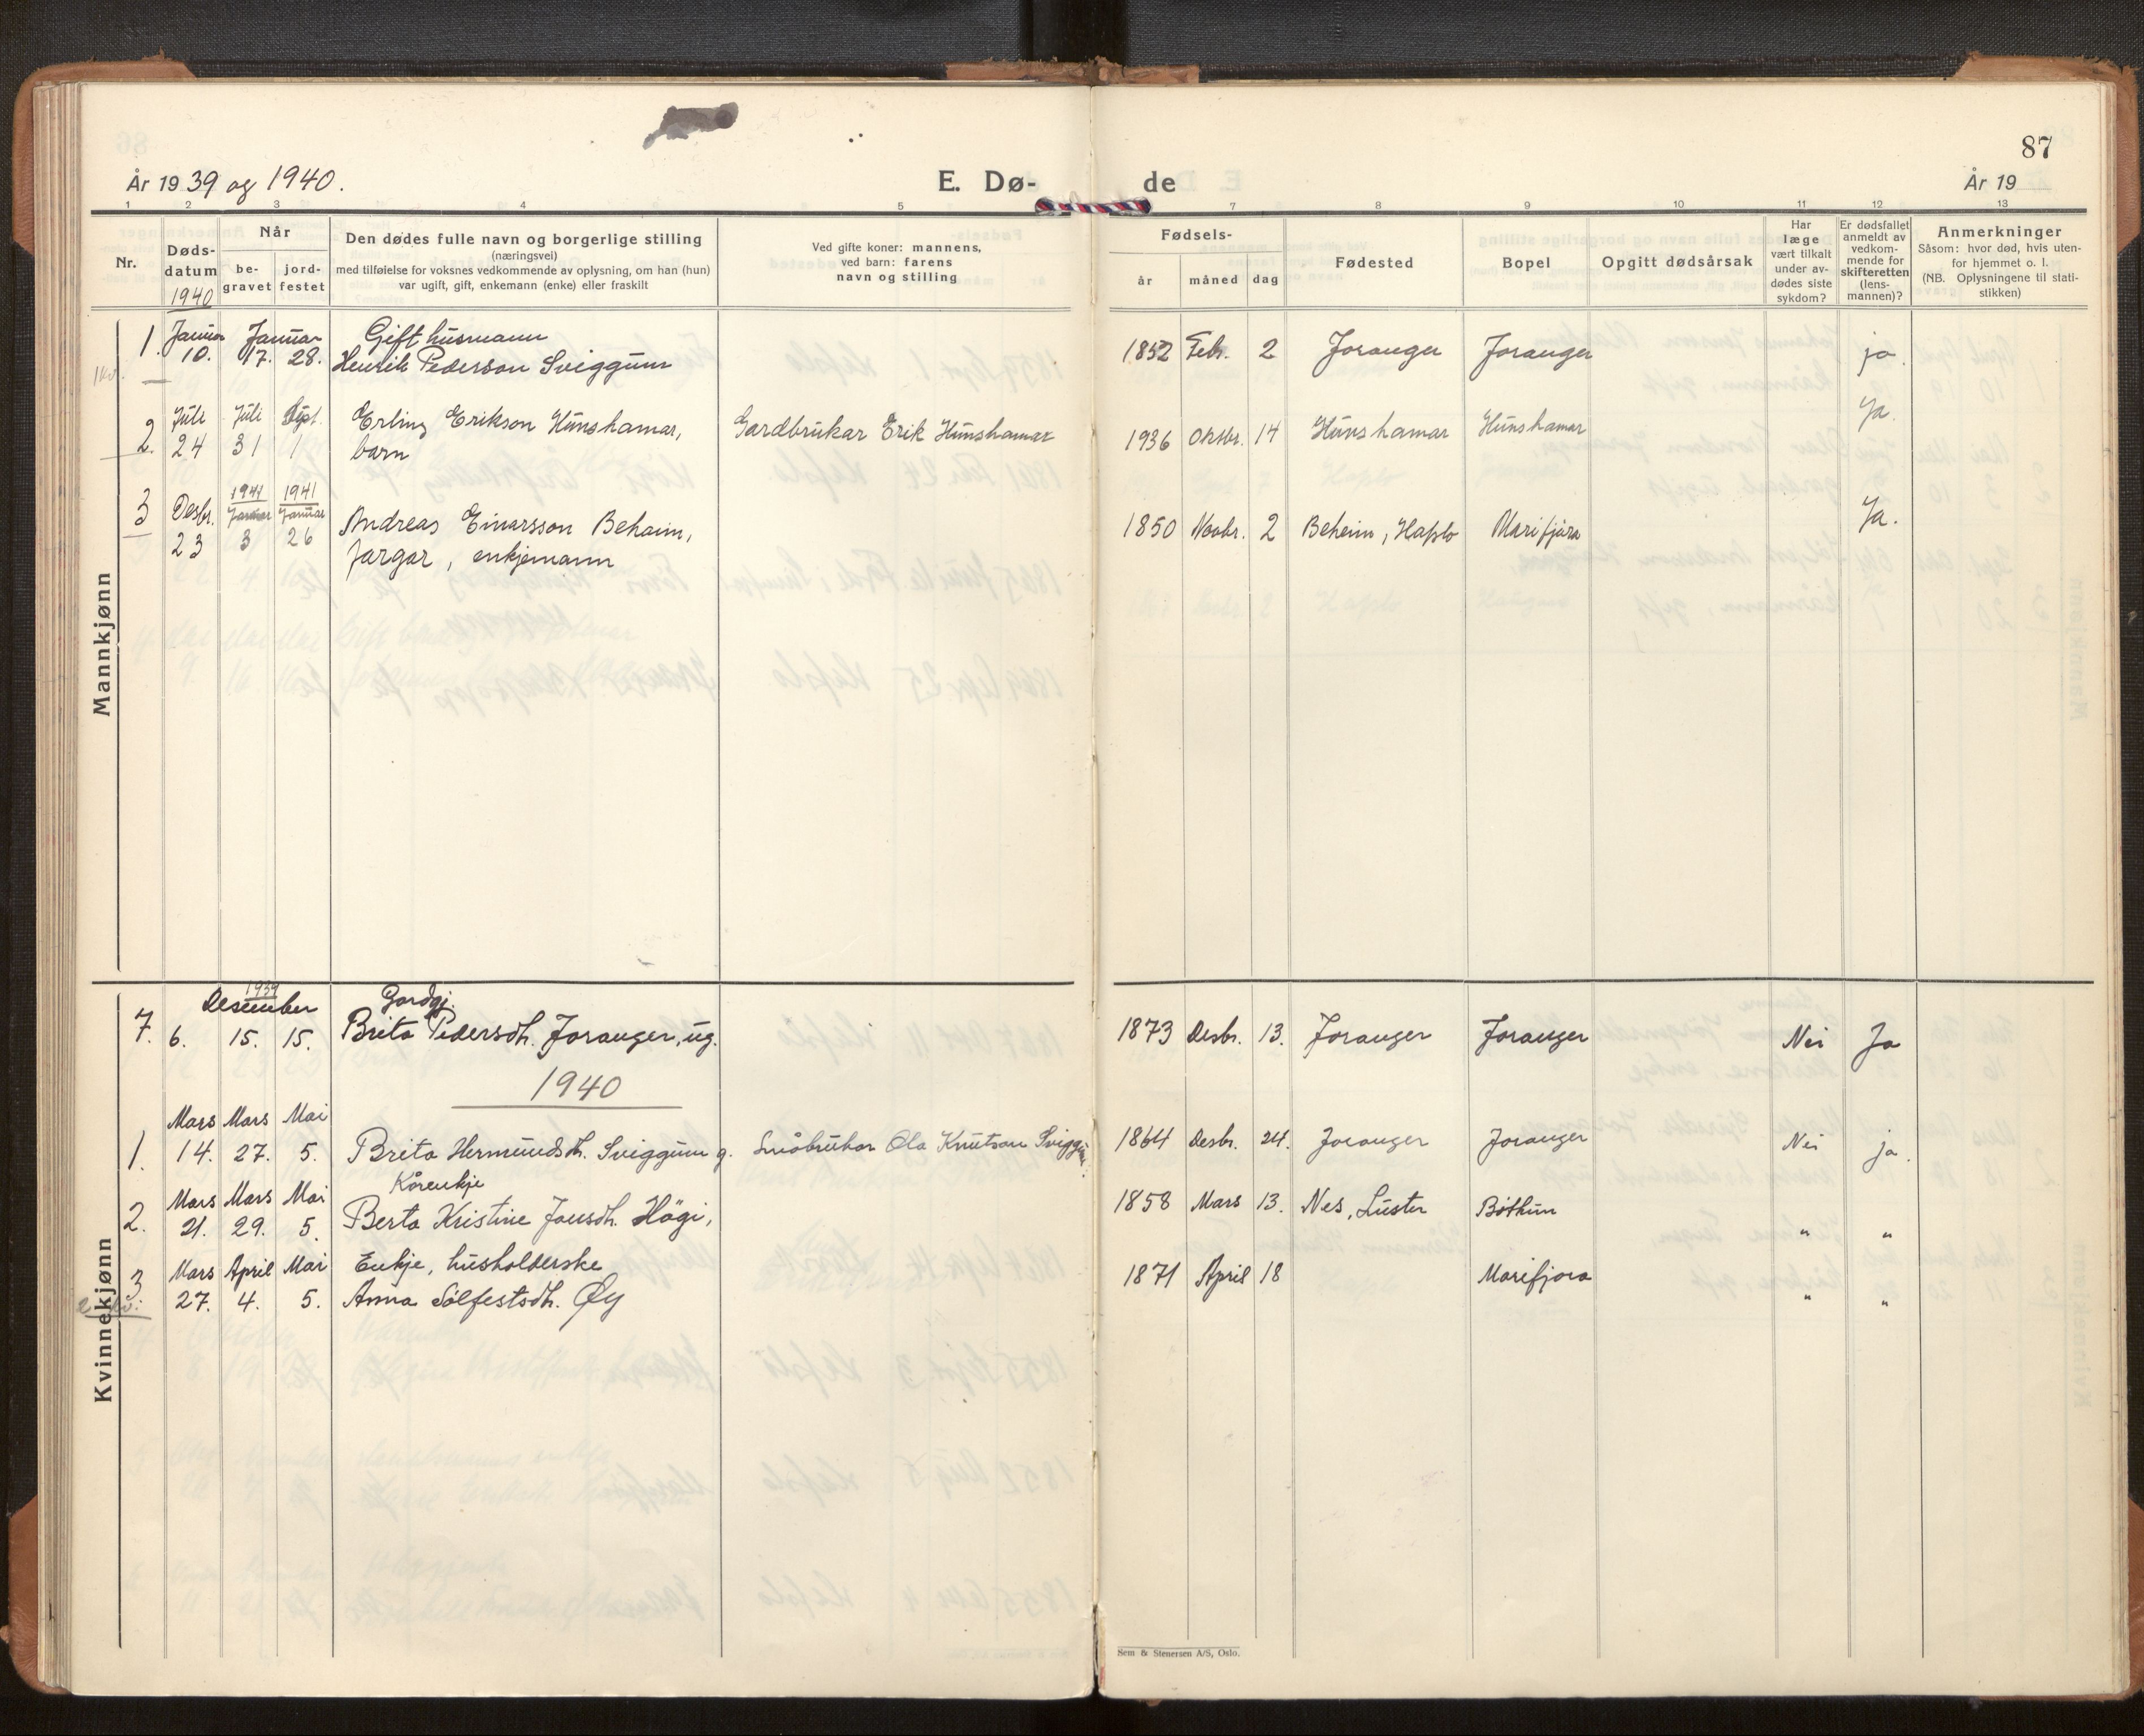 87
År 1939 og 1940.
E. Dø-
de
År 19
1 2 3 4 5 7 8 9 10 11 12 13
Nr.
Døds-
datum
1940
Når
be-
gravet
jord-
festet
Den dødes fulle navn og borgerlige stilling
(næringsvei)
med tilføielse for voksnes vedkommende av oplysning, om han (hun)
var ugift, gift, enkemann (enke) eller fraskilt
Ved gifte koner: mannens,
ved barn: farens
navn og stilling
Fødsels-
år måned dag
Fødested
Bopel
Opgitt dødsårsak
Har
læge
vært tilkalt
under av-
dødes siste
sykdom?
Er dødsfallet
anmeldt av
vedkom-
mende for
skifteretten
(lens-
mannen)?
Anmerkninger
Såsom: hvor død, hvis uten-
for hjemmet o. l.
(NB. Oplysningene til stati-
stikken)
Mannkjønn
Januar Januar Gift husmann
1. 10. 17. 28. Henrik Pederson Sviggum 1852 Febr. 2 Joranger Joranger ja.
Juli Juli Sept.
2. 24 31 1 Erling Erikson Hunshamar, Gardbrukar Erik Hunshamar 1936 Oktbr. 14 Hunshamar Hunshamar Ja.
barn
1941 1941
3 Desbr. Januar Januar
23 3 26 Andreas Einarsson Beheim, 1850 Novbr. 2 Beheim, Hafslo Marifjøra Ja.
fargar, enkjemann
Kvinnekjønn
1939
Desember Gardgj.
7. 6. 15. 15. Brita Pedersdt. Joranger, ug. 1873 Desbr. 13. Joranger Joranger Nei Ja
1940
Mars Mars Mai
1. 14. 27. 5. Brita Hermundsdt. Sviggum g. Småbrukar Ola Knutson Sviggum 1864 Desbr. 24. Joranger Joranger Nei ja.
Mars Mars Mai Kårenkje
2. 21. 29. 5. Berta Kristine Jonsdt. Högi, 1858 Mars 13. Nes, Luster Bothun " "
Mars April Mai Enkje, husholderske
3 27. 4. 5. Anna Sølfestsdt. Øy 1871 April 18 Marifjøra " "
Sem & Stenersen A/S, Oslo.